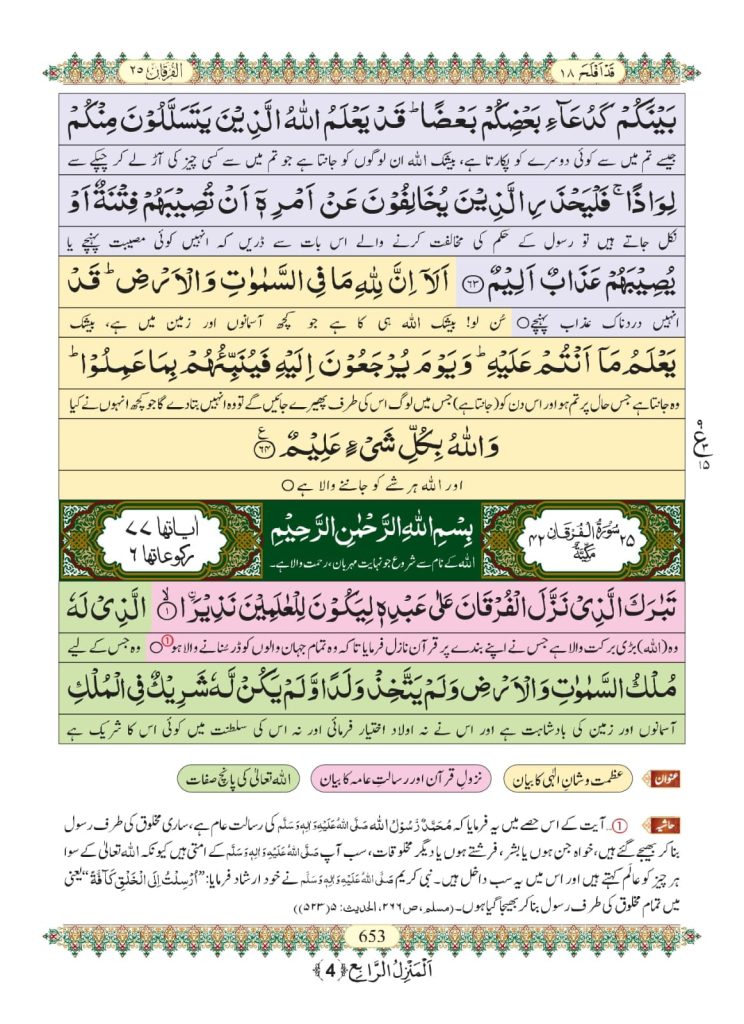 قَدْ اَفْلَحَ ١٨
اَلْفُرْقَانُ ٢٥
بَيْنَكُمْ كَدُعَآءِ بَعْضِكُمْ بَعْضًاؕ قَدْ يَعْلَمُ اللّٰهُ الَّذِيْنَ يَتَسَلَّلُوْنَ مِنْكُمْ
جیسے تم میں سے کوئی دوسرے کو پکارتا ہے، بیشک اللہ ان لوگوں کو جانتا ہے جو تم میں سے کسی چیز کی آڑ لے کر چپکے سے
لِوَاذًاۚ فَلْيَحْذَرِ الَّذِيْنَ يُخَالِفُوْنَ عَنْ اَمْرِهٖۤ اَنْ تُصِيْبَهُمْ فِتْنَةٌ اَوْ
نکل جاتے ہیں تو رسول کے حکم کی مخالفت کرنے والے اس بات سے ڈریں کہ انہیں کوئی مصیبت پہنچے یا
يُصِيْبَهُمْ عَذَابٌ اَلِيْمٌ ﴿۶۳﴾ اَلَاۤ اِنَّ لِلّٰهِ مَا فِي السَّمٰوٰتِ وَالْاَرْضِؕ قَدْ
انہیں دردناک عذاب پہنچے○ سُن لو! بیشک اللہ ہی کا ہے جو کچھ آسمانوں اور زمین میں ہے، بیشک
يَعْلَمُ مَاۤ اَنْتُمْ عَلَيْهِؕ وَيَوْمَ يُرْجَعُوْنَ اِلَيْهِ فَيُنَبِّئُهُمْ بِمَا عَمِلُوْاؕ
وہ جانتا ہے جس حال پر تم ہو اور اس دن کو (جانتا ہے) جس میں لوگ اس کی طرف پھیرے جائیں گے تو وہ انہیں بتا دے گا جو کچھ انہوں نے کیا
وَاللّٰهُ بِكُلِّ شَيْءٍ عَلِيْمٌ ﴿۶۴﴾
اور اللہ ہر شے کو جاننے والا ہے○
ع
۱۵
٢٥ سُوْرَةُ الْفُرْقَانِ مَكِّيَّةٌ ٤٢
بِسْمِ اللّٰهِ الرَّحْمٰنِ الرَّحِيْمِ
اللہ کے نام سے شروع جو نہایت مہربان، رحمت والا ہے۔
اٰیاتها ٧٧
رکوعاتها ٦
تَبٰرَكَ الَّذِيْ نَزَّلَ الْفُرْقَانَ عَلٰى عَبْدِهٖ لِيَكُوْنَ لِلْعٰلَمِيْنَ نَذِيْرًاۙ ﴿۱﴾ الَّذِيْ لَهٗ
وہ (اللہ) بڑی برکت والا ہے جس نے اپنے بندے پر قرآن نازل فرمایا تاکہ وہ تمام جہان والوں کو ڈر سُنانے والا ہو○① وہ جس کے لیے
مُلْكُ السَّمٰوٰتِ وَالْاَرْضِ وَلَمْ يَتَّخِذْ وَلَدًا وَّلَمْ يَكُنْ لَّهٗ شَرِيْكٌ فِي الْمُلْكِ
آسمانوں اور زمین کی بادشاہت ہے اور اس نے نہ اولاد اختیار فرمائی اور نہ اس کی سلطنت میں کوئی اس کا شریک ہے
عنوان عظمت و شانِ الٰہی کا بیان نزولِ قرآن اور رسالتِ عامہ کا بیان اللہ تعالیٰ کی پانچ صفات
حاشیہ ①... آیت کے اس حصے میں یہ فرمایا کہ مُحَمَّدٌ رَّسُوْلُ اللہ صَلَّی اللهُ عَلَيْهِ وَاٰلِهٖ وَسَلَّم کی رسالت عام ہے، ساری مخلوق کی طرف رسول
بنا کر بھیجے گئے ہیں، خواہ جن ہوں یا بشر، فرشتے ہوں یا دیگر مخلوقات، سب آپ صَلَّی اللهُ عَلَيْهِ وَاٰلِهٖ وَسَلَّم کے امتی ہیں کیونکہ اللہ تعالیٰ کے سوا
ہر چیز کو عالَم کہتے ہیں اور اس میں یہ سب داخل ہیں۔ نبی کریم صَلَّی اللهُ عَلَيْهِ وَاٰلِهٖ وَسَلَّم نے خود ارشاد فرمایا: ”اُرْسِلْتُ اِلَى الْخَلْقِ كَآفَّةً“ یعنی
میں تمام مخلوق کی طرف رسول بنا کر بھیجا گیا ہوں۔ (مسلم، ص۲۶۶، الحدیث: ۵(۵۲۳))
653
اَلْمَنْزِلُ الرَّابِع ﴿4﴾